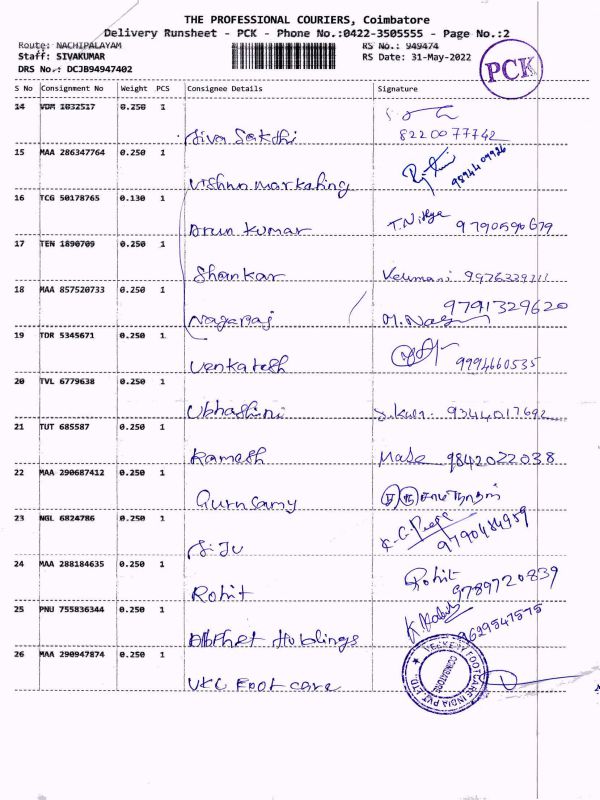 THE PROFESSIONAL COURIERS, Coimbatore
Delivery Runsheet - PCK - Phone No.:0422-3505555 - Page No.:2
Route: NACHIPALAYAM RS No.: 949474
Staff: SIVAKUMAR RS Date: 31-May-2022
DRS No.: DCJB94947402
PCK
S No Consignment No Weight PCS Consignee Details Signature
14 VDM 1032517 0.250 1
Siva Sakthi 8220077742
15 MAA 286347764 0.250 1
Vishnu markating 9894409926
16 TCG 50178765 0.130 1
Arun kumar T.Nithya 9790590679
17 TEN 1890709 0.250 1
Shankar Velimani
18 MAA 857520733 0.250 1
Nagaraj 9791329620
19 TDR 5345671 0.250 1
Venkatesh 9994660535
20 TVL 6779638 0.250 1
Ubhashini 9344017692
21 TUT 685587 0.250 1
Ramesh 9842022038
22 MAA 290687412 0.250 1
Gurusamy
23 NGL 6824786 0.250 1
SiJu 9790484959
24 MAA 288184635 0.250 1
Rohit Rohit 9789720839
25 PNU 755836344 0.250 1
Holdings 9629547575
26 MAA 290947874 0.250 1
VKC Foot care
FOOTCARE INDIA PVT LTD